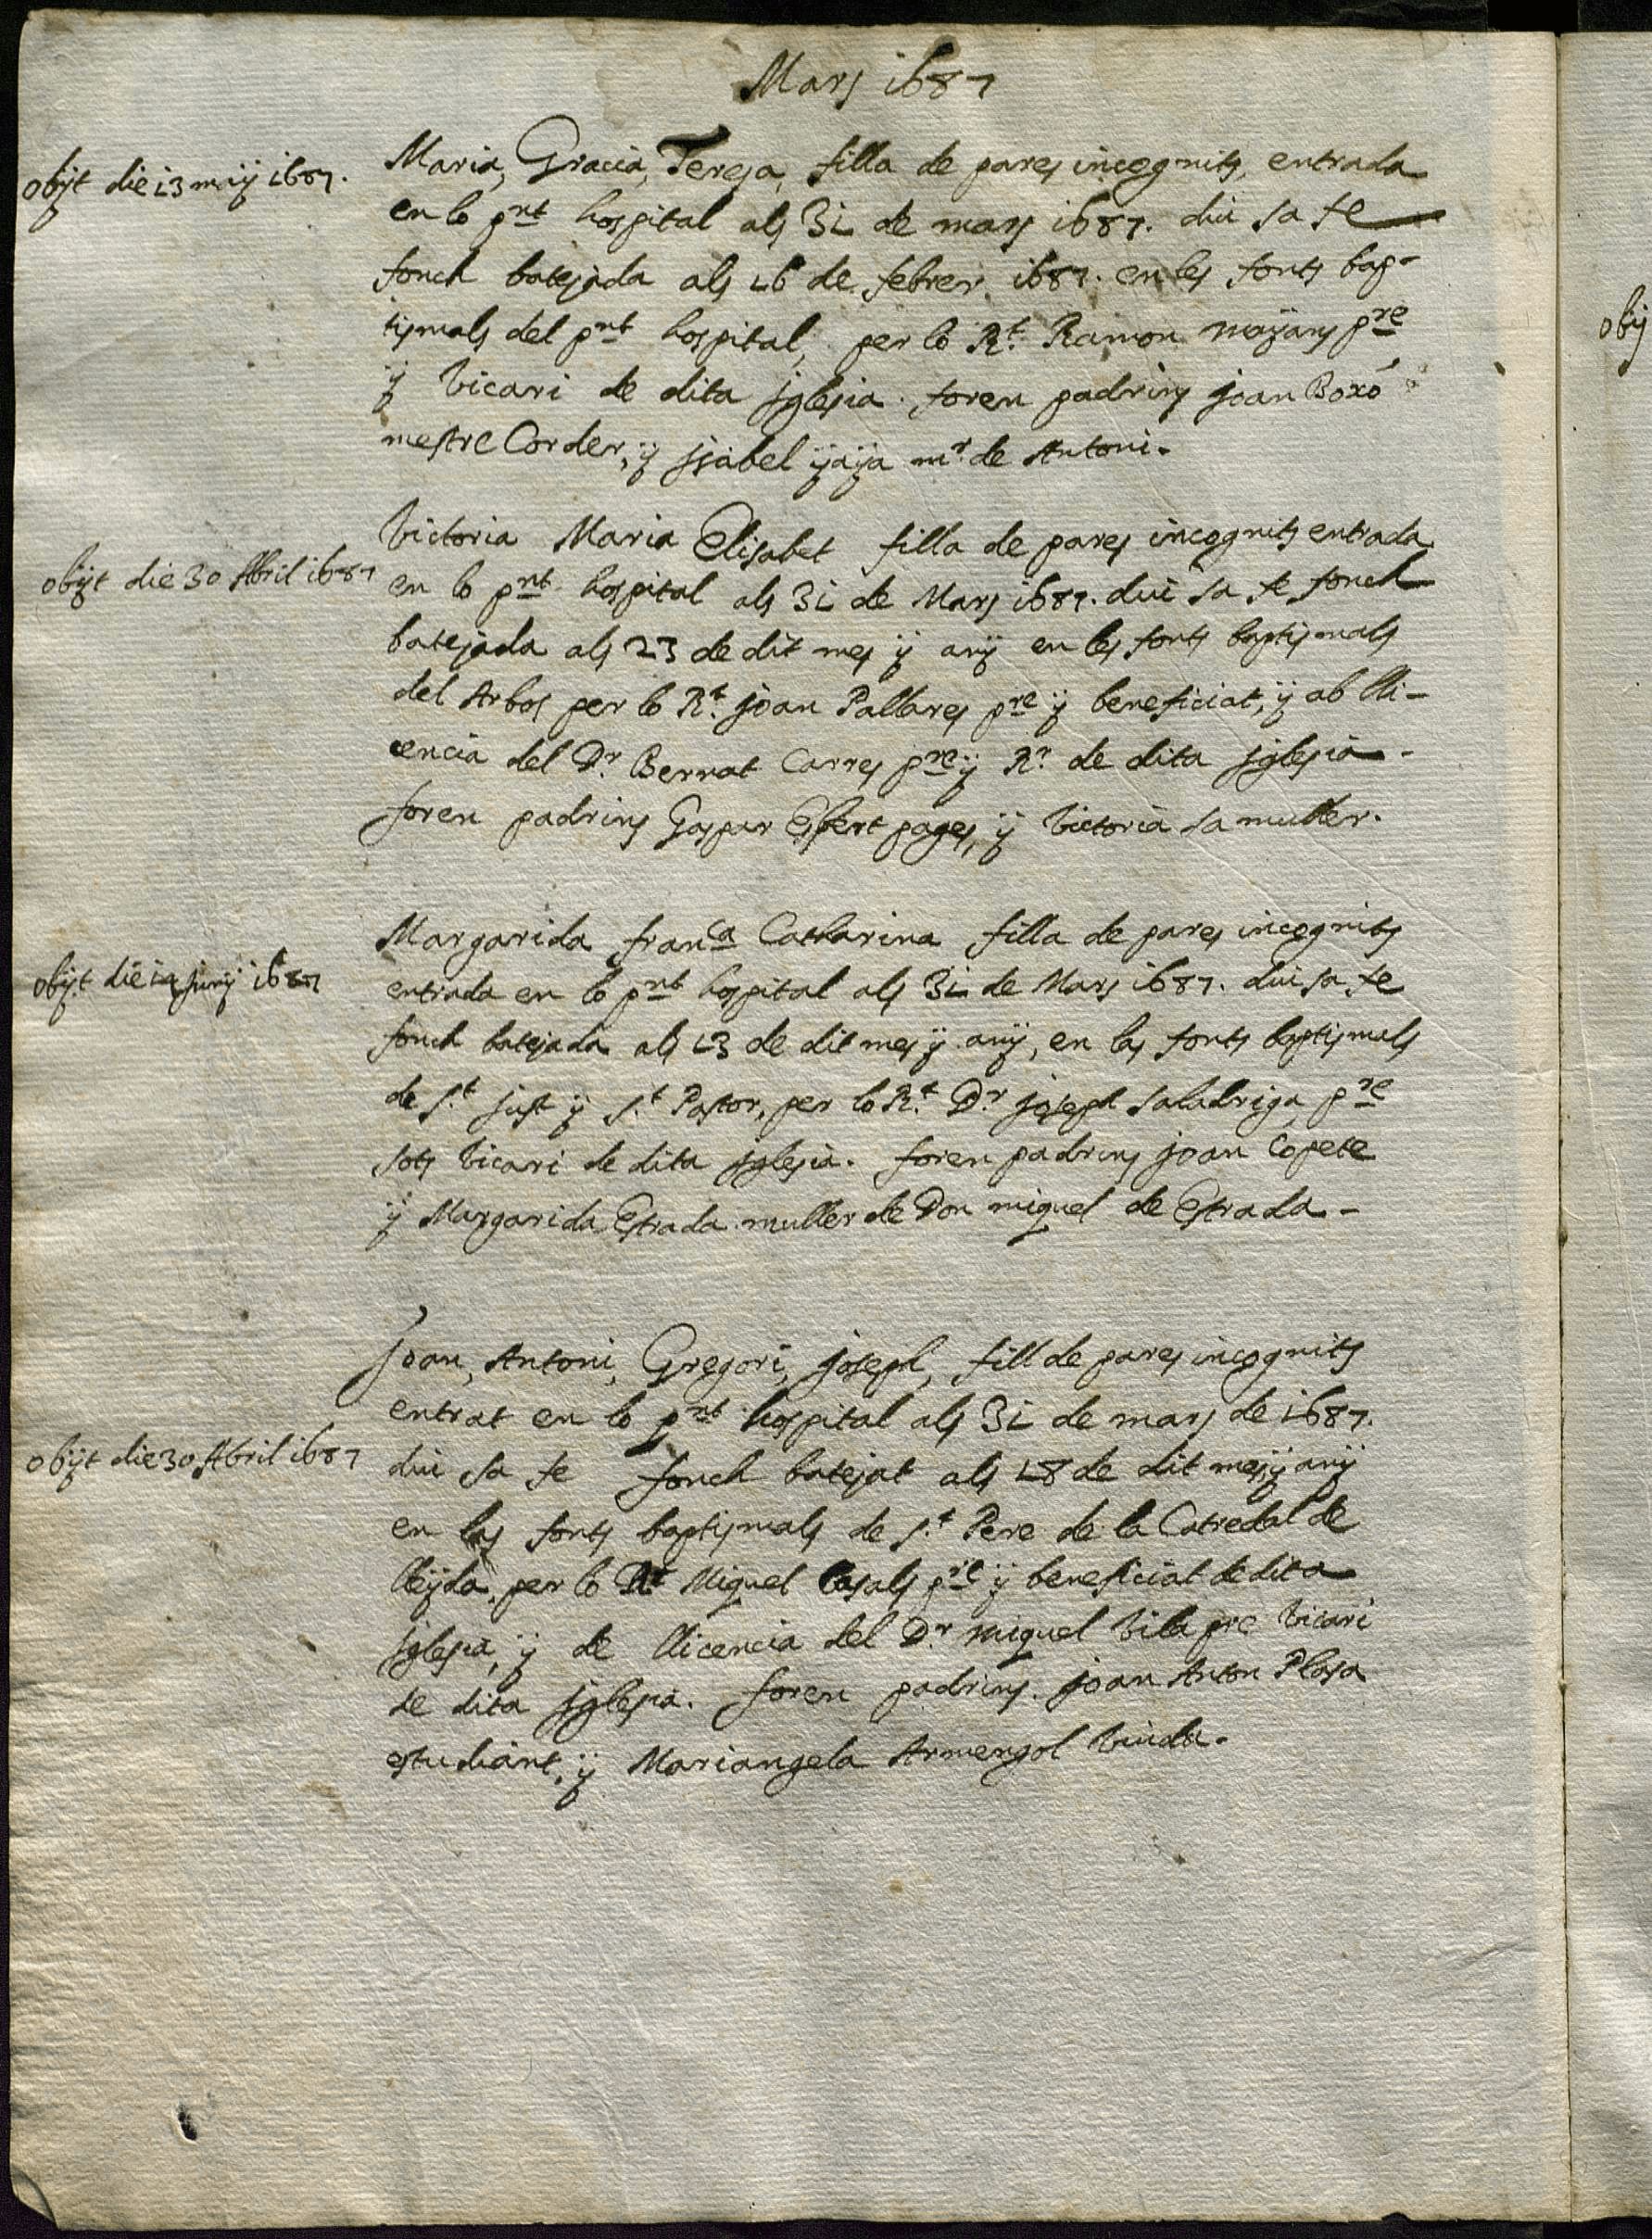 Mars 1687
obijt die 13 maij 1687.
Maria, Gracia, Teresa, filla de pares incognits, entrada
en lo pnt hospital als 31 de mars 1687. diu sa fe
fonch batejada als 16 de febrer 1687. en les fonts bap-
tismals del pnt hospital, per lo Rt. Ramon mayans pre
ÿ Vicari de dita jglesia. foren padrins joan Boxó
mestre Corder, ÿ jsabel ÿaÿa mr. de Antoni.
obijt die 30 Abril 1687
Victoria Maria Elisabet filla de pares incognits entrada
en lo pnt hospital als 31 de Mars 1687. diu sa fe fonch
batejada als 23 de dit mes ÿ anÿ en les fonts baptismals
del Arbos per lo Rt. joan Pallares pre ÿ beneficiat, ÿ ab lli-
cencia del Dr. Bernat Carres pre ÿ Rr. de dita jglesia.
foren padrins Gaspar Esbert pages, ÿ Victoria sa muller.
obijt die junÿ 1687
Margarida franca Catharina filla de pares incognits
entrada en lo pnt hospital als 31 de Mars 1687. diu sa fe
fonch batejada als 13 de dit mes ÿ anÿ, en las fonts baptismals
de St. just ÿ St. Pastor, per lo Rt. Dr. joseph Saladriga pre
sots Vicari de dita jglesia. foren padrins joan Copete
ÿ Margarida Estrada muller de Don miquel de Estrada.
Joan, Antoni, Gregori, joseph, fill de pares incognits
entrat en lo pnt hospital als 31 de mars de 1687.
obijt die 30 Abril 1687
diu sa fe fonch batejat als 18 de dit mes, ÿ anÿ
en las fonts baptismals de St. Pere de la Catredal de
lleÿda, per lo Rt Miquel Casals pre ÿ beneficiat de dita
jglesia, ÿ de llicencia del Dr. miquel Vila pre Vicari
de dita jglesia. foren padrins. joan Anton Plasa
estudiant, ÿ Mariangela Armengol Viuda.
obij